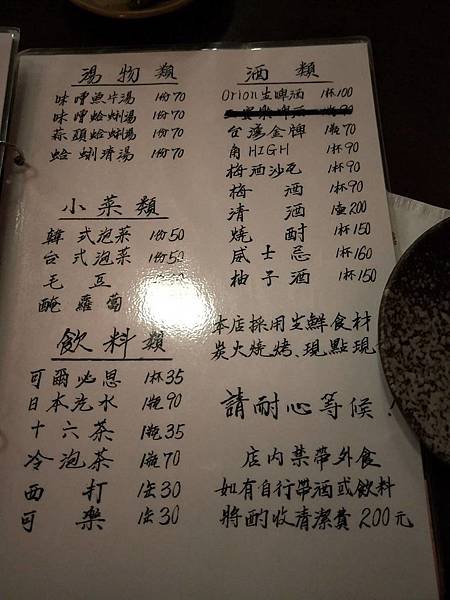 湯物類
味噌魚片湯 1份70
味噌蛤蜊湯 1份70
蒜頭蛤蜊湯 1份70
蛤蜊清湯 1份70
小菜類
韓式泡菜 1份50
台式泡菜 1份50
毛豆
醃蘿蔔
飲料類
可爾必思 1杯35
日本汽水 1瓶90
十六茶 1瓶35
冷泡茶 1瓶70
西打 1缶30
可樂 1缶30
酒類
Orion生啤酒 1杯100
台灣金牌 1瓶70
角HIGH 1杯90
梅酒沙瓦 1杯90
梅酒 1杯90
清酒 1壺200
燒酎 1杯150
威士忌 1杯160
柚子酒 1杯150
本店採用生鮮食材
炭火燒烤、現點現
請耐心等候!
店內禁帶外食
如有自行帶酒或飲料
將酌收清潔費200元